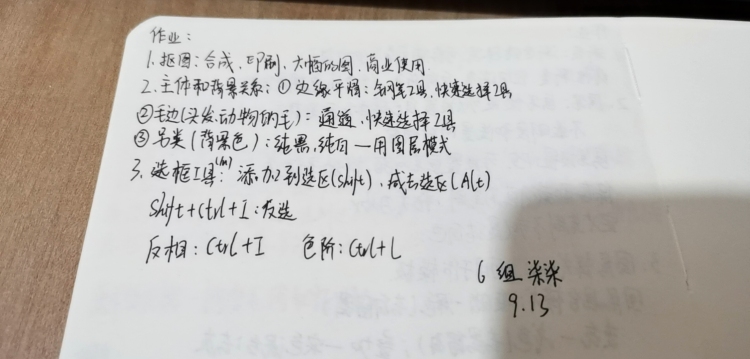 作业:
1.抠图:合成、印刷、大幅的图、商业使用
2.主体和背景关系:①边缘平滑:钢笔工具、快速选择工具
②毛边(头发、动物的毛):通道、快速选择工具
③另类(背景色):纯黑、纯白—用图层模式
3.选框工具(M):添加到选区(shift)、减去选区(Alt)
Shift+Ctrl+I:反选
反相:Ctrl+I 色阶:Ctrl+L
6组 柒柒
9.13